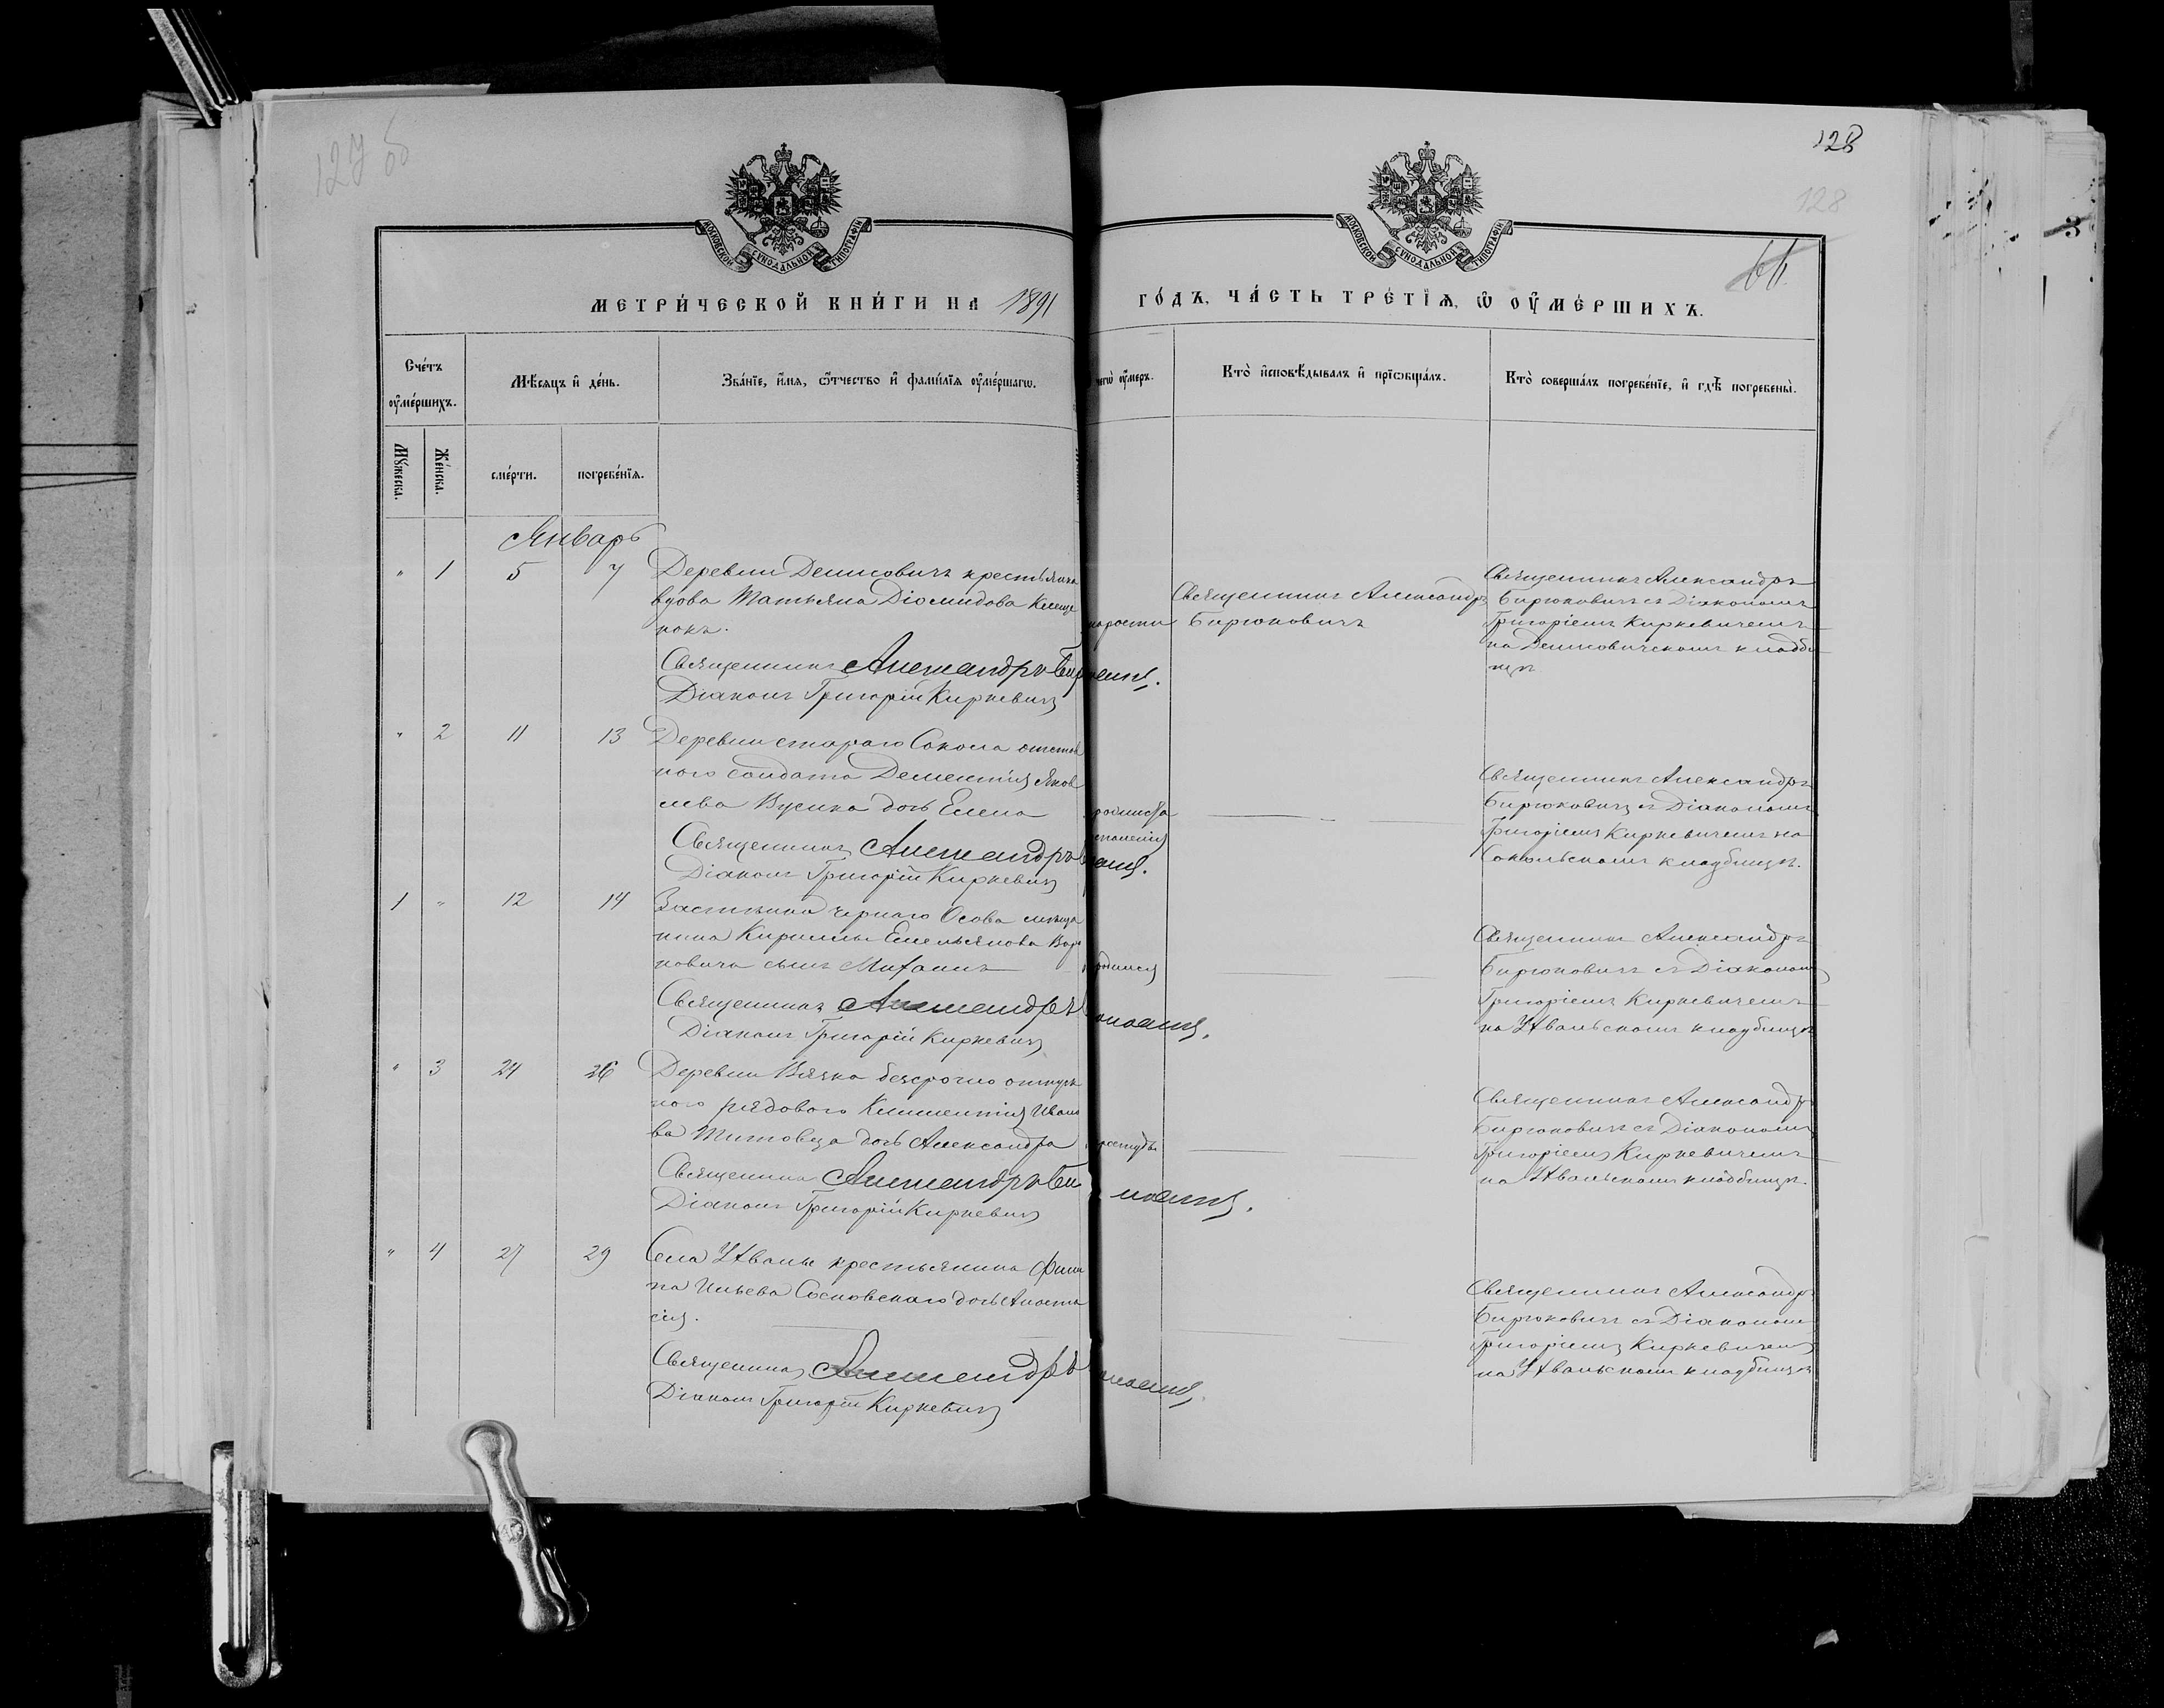 127 об
128
128
66
МОСКОВСКОЙ СѴНОДАЛЬНОЙ ТИПОГРАФІИ
МОСКОВСКОЙ СѴНОДАЛЬНОЙ ТИПОГРАФІИ
МЕТРИ́ЧЕСКОЙ КНИ́ГИ НА 1891 ГО́ДЪ, ЧА́СТЬ ТРЕ́ТЇѦ, Ѡ҆ ОУ҆МЕ́РШИХЪ.
Сче́тъ оу҆ме́ршихъ.
Мѣ́сяцъ и҆ де́нь.
Зва́нїе, и҆́мя, ѻ҆́тчество и҆ фами́лїя оу҆ме́ршагѡ.
чегѡ̀ оу҆́меръ.
Кто̀ и҆сповѣ́дывалъ и҆ прїѡбща́лъ.
Кто̀ соверша́лъ погребе́нїе, и҆ гдѣ̀ погребены̀.
Мꙋ́жеска.
Же́нска.
сме́рти.
погребе́нїя.
Январь
" 1 5 7 Деревни Денисовичъ крестьянка
вдова Татьяна Діомидова Клеще
нокъ.
Священникъ Александръ
Діаконъ Григорій Киркевичъ
Священникъ Александръ
Бирюковичъ
Священникъ Александръ
Бирюковичъ съ Діакономъ
Григоріемъ Киркевичемъ
на Денисовическомъ кладби
щѣ
" 2 11 13 Деревни стараго Сокола отстав
ного солдата Дементія Яков
лева Бусика дочь Елена
Священникъ Александръ
Діаконъ Григорій Киркевичъ
Священникъ Александръ
Бирюковичъ съ Діакономъ
Григоріемъ Киркевичемъ на
Сокольскомъ кладбищѣ.
1 " 12 14 Застѣнка чернаго Осова мѣща
нина Кириллы Емельянова
новича сынъ
Священникъ Александръ
Діаконъ Григорій Киркевичъ
Священникъ Александръ
Бирюковичъ съ Діакономъ
Григоріемъ Киркевичемъ
на Ухвальскомъ кладбищѣ
" 3 24 26 Деревни Вязка безсрочно отпуск
ного рядового Климентія Ивано
ва Титовца дочь Александра
простуды
Священникъ Александръ
Діаконъ Григорій Киркевичъ
Священникъ Александръ
Бирюковичъ съ Діакономъ
Григоріемъ Киркевичемъ
на Ухвальскомъ кладбищѣ.
" 4 27 29 Села Ухвалы крестьянина Фили
па Ильева Сосновскаго дочь Анаста
сія.
Священникъ Александръ
Діаконъ Григорій Киркевичъ
Священникъ Александръ
Бирюковичъ съ Діакономъ
Григоріемъ Киркевичемъ
на Ухвальскомъ кладбищѣ